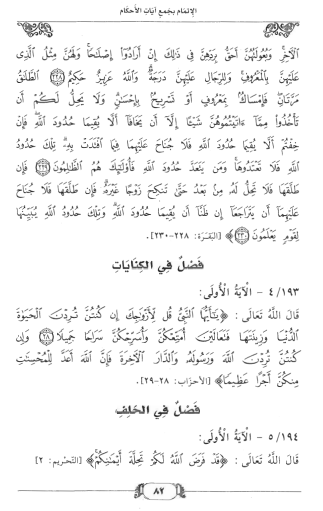 الإلمام بجمع آيات الأحكام
الْآخِرِ وَبُعُولَتُهُنَّ أَحَقُّ بِرَدِّهِنَّ فِي ذَلِكَ إِنْ أَرَادُوا إِصْلَاحًا وَلَهُنَّ مِثْلُ الَّذِي
عَلَيْهِنَّ بِالْمَعْرُوفِ وَلِلرِّجَالِ عَلَيْهِنَّ دَرَجَةٌ وَاللَّهُ عَزِيزٌ حَكِيمٌ ﴿٢٢٨﴾ الطَّلَاقُ
مَرَّتَانِ فَإِمْسَاكٌ بِمَعْرُوفٍ أَوْ تَسْرِيحٌ بِإِحْسَانٍ وَلَا يَحِلُّ لَكُمْ أَنْ
تَأْخُذُوا مِمَّا آتَيْتُمُوهُنَّ شَيْئًا إِلَّا أَنْ يَخَافَا أَلَّا يُقِيمَا حُدُودَ اللَّهِ فَإِنْ
خِفْتُمْ أَلَّا يُقِيمَا حُدُودَ اللَّهِ فَلَا جُنَاحَ عَلَيْهِمَا فِيمَا افْتَدَتْ بِهِ تِلْكَ حُدُودُ
اللَّهِ فَلَا تَعْتَدُوهَا وَمَنْ يَتَعَدَّ حُدُودَ اللَّهِ فَأُولَئِكَ هُمُ الظَّالِمُونَ ﴿٢٢٩﴾ فَإِنْ
طَلَّقَهَا فَلَا تَحِلُّ لَهُ مِنْ بَعْدُ حَتَّى تَنْكِحَ زَوْجًا غَيْرَهُ فَإِنْ طَلَّقَهَا فَلَا جُنَاحَ
عَلَيْهِمَا أَنْ يَتَرَاجَعَا إِنْ ظَنَّا أَنْ يُقِيمَا حُدُودَ اللَّهِ وَتِلْكَ حُدُودُ اللَّهِ يُبَيِّنُهَا
لِقَوْمٍ يَعْلَمُونَ ﴿٢٣٠﴾﴾ [البَقَرَة: ٢٢٨-٢٣٠].
فَصْلٌ فِي الكِنَايَاتِ
٤/١٩٣ - الآيَةُ الأُولَى:
قَالَ اللَّهُ تَعَالَى: ﴿يَاأَيُّهَا النَّبِيُّ قُلْ لِأَزْوَاجِكَ إِنْ كُنْتُنَّ تُرِدْنَ الْحَيَاةَ
الدُّنْيَا وَزِينَتَهَا فَتَعَالَيْنَ أُمَتِّعْكُنَّ وَأُسَرِّحْكُنَّ سَرَاحًا جَمِيلًا ﴿٢٨﴾ وَإِنْ
كُنْتُنَّ تُرِدْنَ اللَّهَ وَرَسُولَهُ وَالدَّارَ الْآخِرَةَ فَإِنَّ اللَّهَ أَعَدَّ لِلْمُحْسِنَاتِ
مِنْكُنَّ أَجْرًا عَظِيمًا﴾ [الأحزَاب: ٢٨-٢٩].
فَصْلٌ فِي الحَلِفِ
٥/١٩٤ - الآيَةُ الأُولَى:
قَالَ اللَّهُ تَعَالَى: ﴿قَدْ فَرَضَ اللَّهُ لَكُمْ تَحِلَّةَ أَيْمَانِكُمْ﴾ [التّحريم: ٢]
٨٢